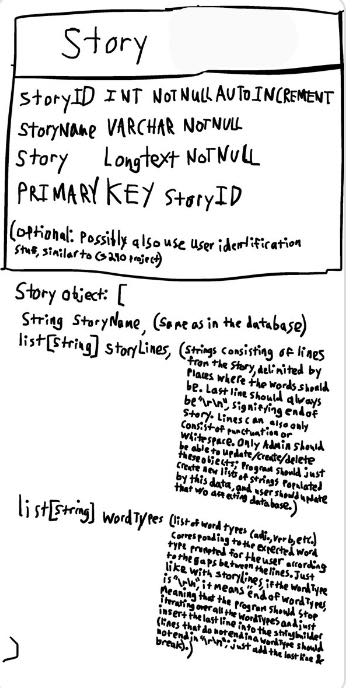 Story
StoryID INT NOTNULL AUTO INCREMENT
StoryName VARCHAR NOTNULL
Story Longtext NOTNULL
PRIMARY KEY StoryID
(optional: Possibly also use User identification
stuff, similar to CS290 project)
Story object: [
String StoryName, (Same as in the database)
list[string] StoryLines, (Strings consisting of lines
from the story, delimited by
Places where the words should
be. Last line should always
be "\r\n", signifying end of
Story. Lines can also only
Consist of punctuation or
Whitespace. Only Admin should
be able to update/create/delete
these objects; Program should just
create new lists of strings populated
by this data, and user should update
that w/o accessing database.)
list[string] WordTypes (list of word types (adj., verb, etc.)
Corresponding to the expected word
type prompted for the user according
to the gaps between the lines. Just
like with storylines, if the wordType
is "\r\n", it means end of wordTypes,
Meaning that the program should stop
iterating over all the WordTypes and just
insert the last line into the stringbuilder
(lines that do not end in a wordType should
not end in "\r\n"; just add the last line &
break).)
]